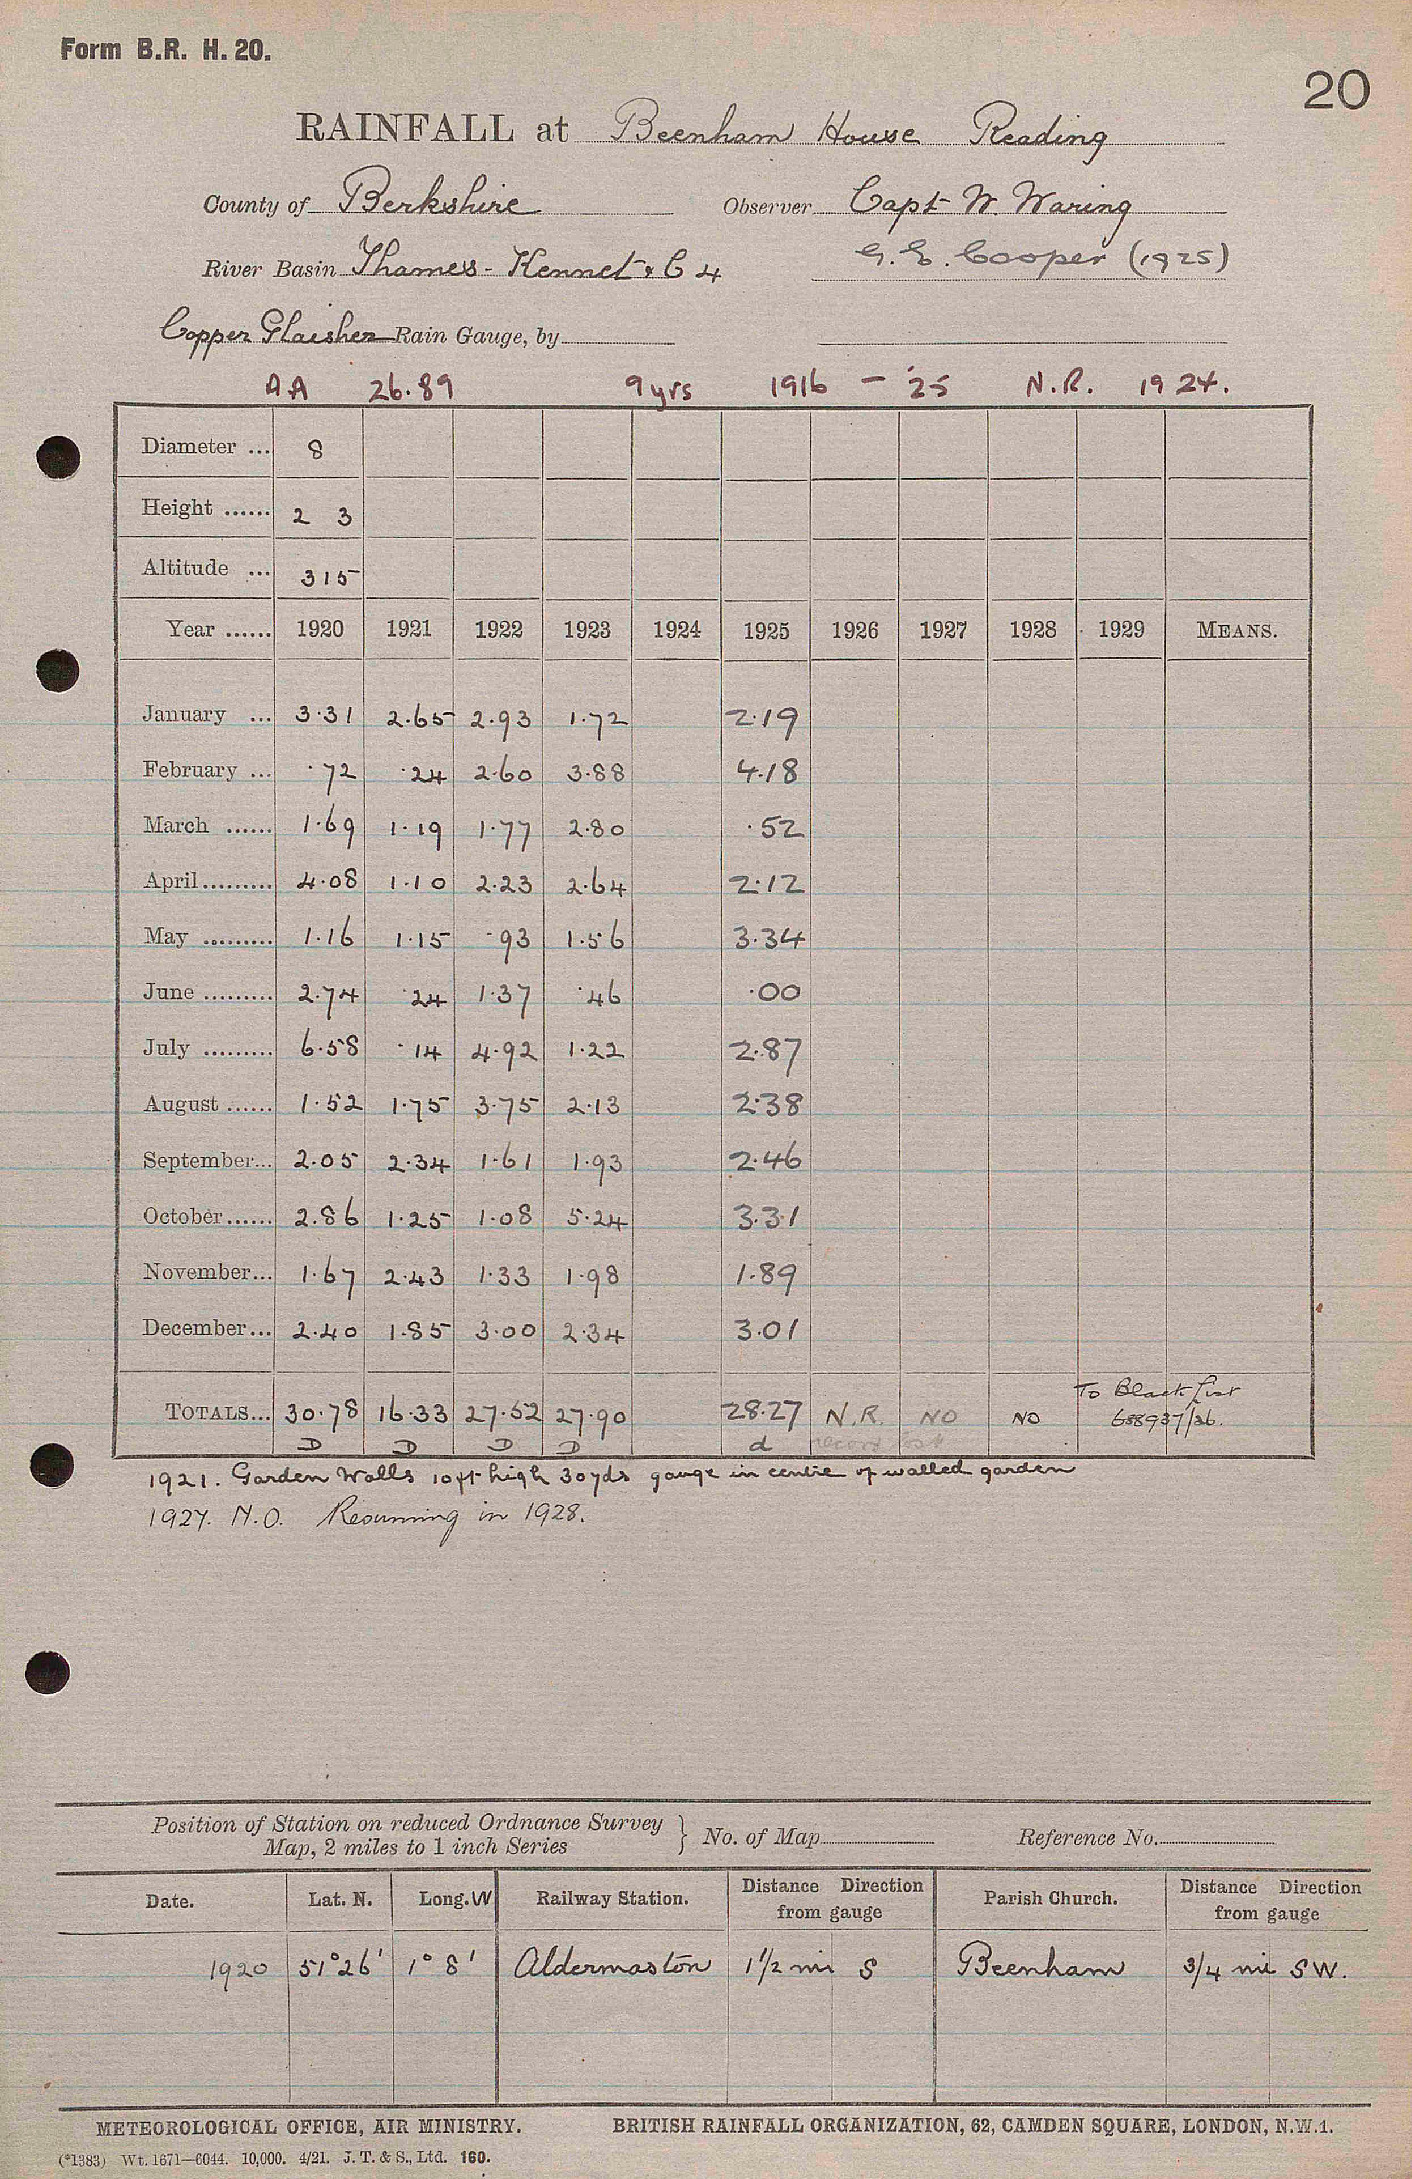 Form B.R. H. 20.
20
RAINFALL at Beenham House Reading
County of Berkshire Observer Capt W. Waring
River Basin Thames - Kennet & C 4 G. E. Cooper (1925)
Copper Glaisher Rain Gauge, by
AA 26.89 9 yrs 1916 – '25 N.R. 1924.
Diameter ... 8
Height ...... 2 3
Altitude ... 315
Year ...... 1920 1921 1922 1923 1924 1925 1926 1927 1928 1929 MEANS.
January ... 3.31 2.65 2.93 1.72 2.19
February ... .72 .24 2.60 3.88 4.18
March ...... 1.69 1.19 1.77 2.80 .52
April......... 4.08 1.10 2.23 2.64 2.12
May ......... 1.16 1.15 .93 1.56 3.34
June ......... 2.74 .24 1.37 .46 .00
July ......... 6.58 .14 4.92 1.22 2.87
August ...... 1.52 1.75 3.75 2.13 2.38
September... 2.05 2.34 1.61 1.93 2.46
October...... 2.86 1.25 1.08 5.24 3.31
November... 1.67 2.43 1.33 1.98 1.89
December... 2.40 1.85 3.00 2.34 3.01
To Black List
TOTALS... 30.78 16.33 27.52 27.90 28.27 N.R. NO NO 688937/26.
D D D D d record lost
1921. Garden Walls 10ft high 30yds gauge in centre of walled garden
1927. N.O. Resuming in 1928.
Position of Station on reduced Ordnance Survey Map, 2 miles to 1 inch Series } No. of Map Reference No.
Date. Lat. N. Long. W Railway Station. Distance Direction from gauge Parish Church. Distance Direction from gauge
1920 51°26' 1° 8' Aldermaston 1 1/2 mi S Beenham 3/4 mi SW.
METEOROLOGICAL OFFICE, AIR MINISTRY. BRITISH RAINFALL ORGANIZATION, 62, CAMDEN SQUARE, LONDON, N.W.1.
(*1383) Wt. 1671—6044. 10,000. 4/21. J. T. & S., Ltd. 160.